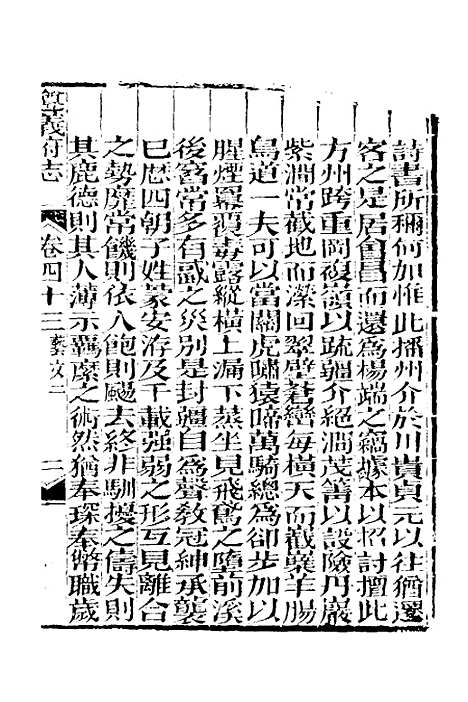 詩書所稱何加惟此播州介於川貴貞元以往猶遷
客之是居會昌而還為楊端之竊據本以招討擅此
方州跨重岡複嶺以疏疆介絕澗茂箐以設險丹巖
紫澗常截地而瀠回翠壁蒼巒每橫天而截嶪羊腸
鳥道一夫可以當關虎嘯猿啼萬騎總為卻步加以
腥煙羃覆毒露縱橫上漏下蒸坐見飛鳶之墮前溪
後窖常多有蜮之災別是封疆自為聲敎冠紳承襲
巳厯四朝子姓蒙安洊及千載强弱之形互見離合
之勢靡常饑則依人飽則颺去終非馴擾之儔失則
其鹿德則其人薄示羈縻之術然猶奉琛奉幣職歲
遵義府志
卷四十三
藝文二
二